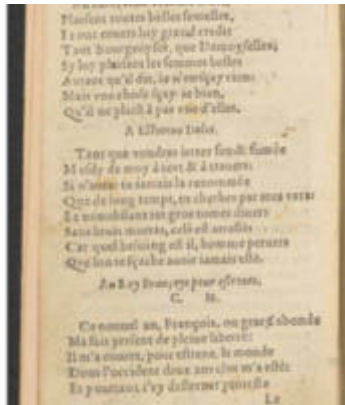 Plaisent toutes belles femelles,
Et ont envers luy grand credit
Tant Bourgeoyses, que Damoyselles:
Sy luy plaisent les femmes belles
Autant qu'il dit, ie n'en sçay rien:
Mais vne chose sçay-ie bien,
Qu'il ne plaist à pas vne d'elles.
A Estienne Dolet.
Tant que voudras ietter feu & fumée
Mesdy de moy à tort & à trauers:
Si n'auras tu iamais la renommée
Que de long temps, tu cherches par mes vers:
Et nonobstant tes gros tomes diuers
Sans bruit mourras, cela est arresté:
Car quel besoing est il, homme peruers
Que lon te sçache auoir iamais esté.
Au Roy pour estrenes,
C. M.
Ce nouuel an, François, ou grace abonde
Ma fait present de pleine liberté:
Il m'a ouuert, pour estrene, le monde
Dont l'occident deux ans clos m'a esté:
Et pourtant i'ay
Le